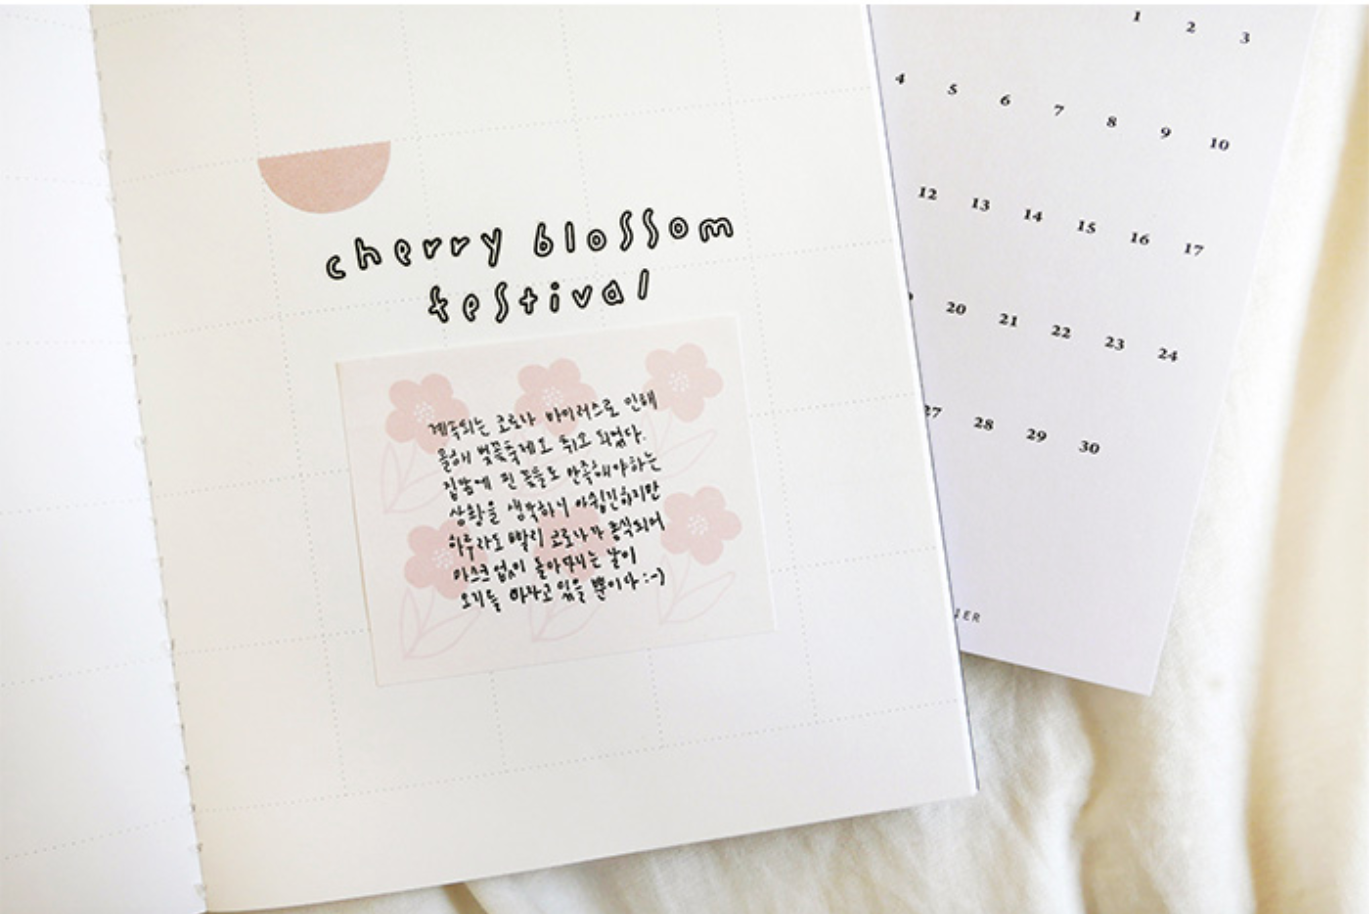 cherry blossom
festival
계속되는 코로나 바이러스로 인해
올해 벚꽃축제도 취소 되었다.
집앞에 핀 꽃들로 만족해야하는
상황을 생각하니 아쉽긴하지만
하루라도 빨리 코로나가 종식되어
마스크 없이 돌아다니는 날이
오기를 바라고 있을 뿐이다 :-)
1 2 3
4 5 6 7 8 9 10
12 13 14 15 16 17
20 21 22 23 24
27 28 29 30